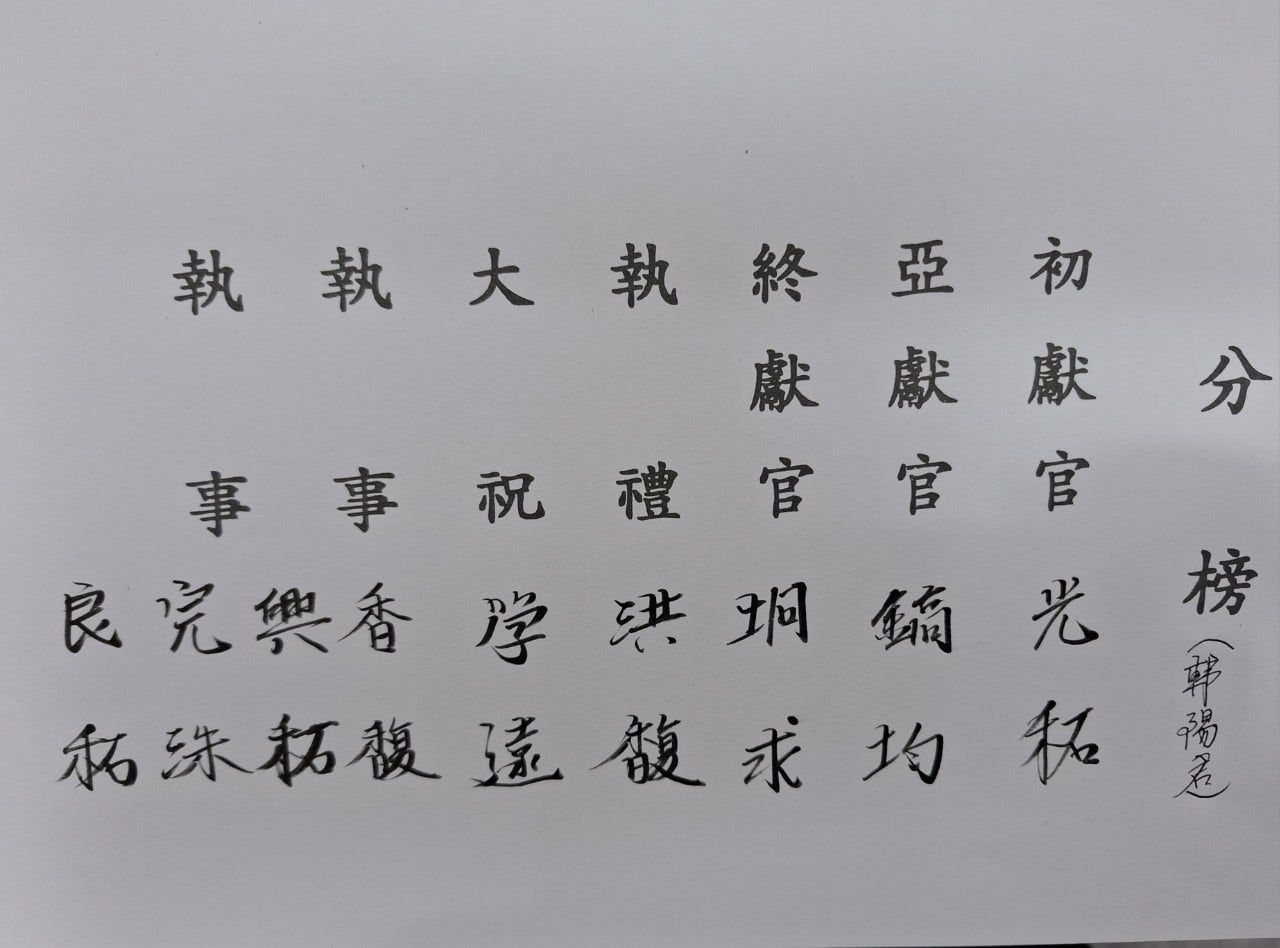 分榜(韩陽君)
初獻官 光秙
亞獻官 鎬均
終獻官 坰求
執禮 洪馥
大祝 学遠
執事 香馥
興秙
執事 完洙
良秙